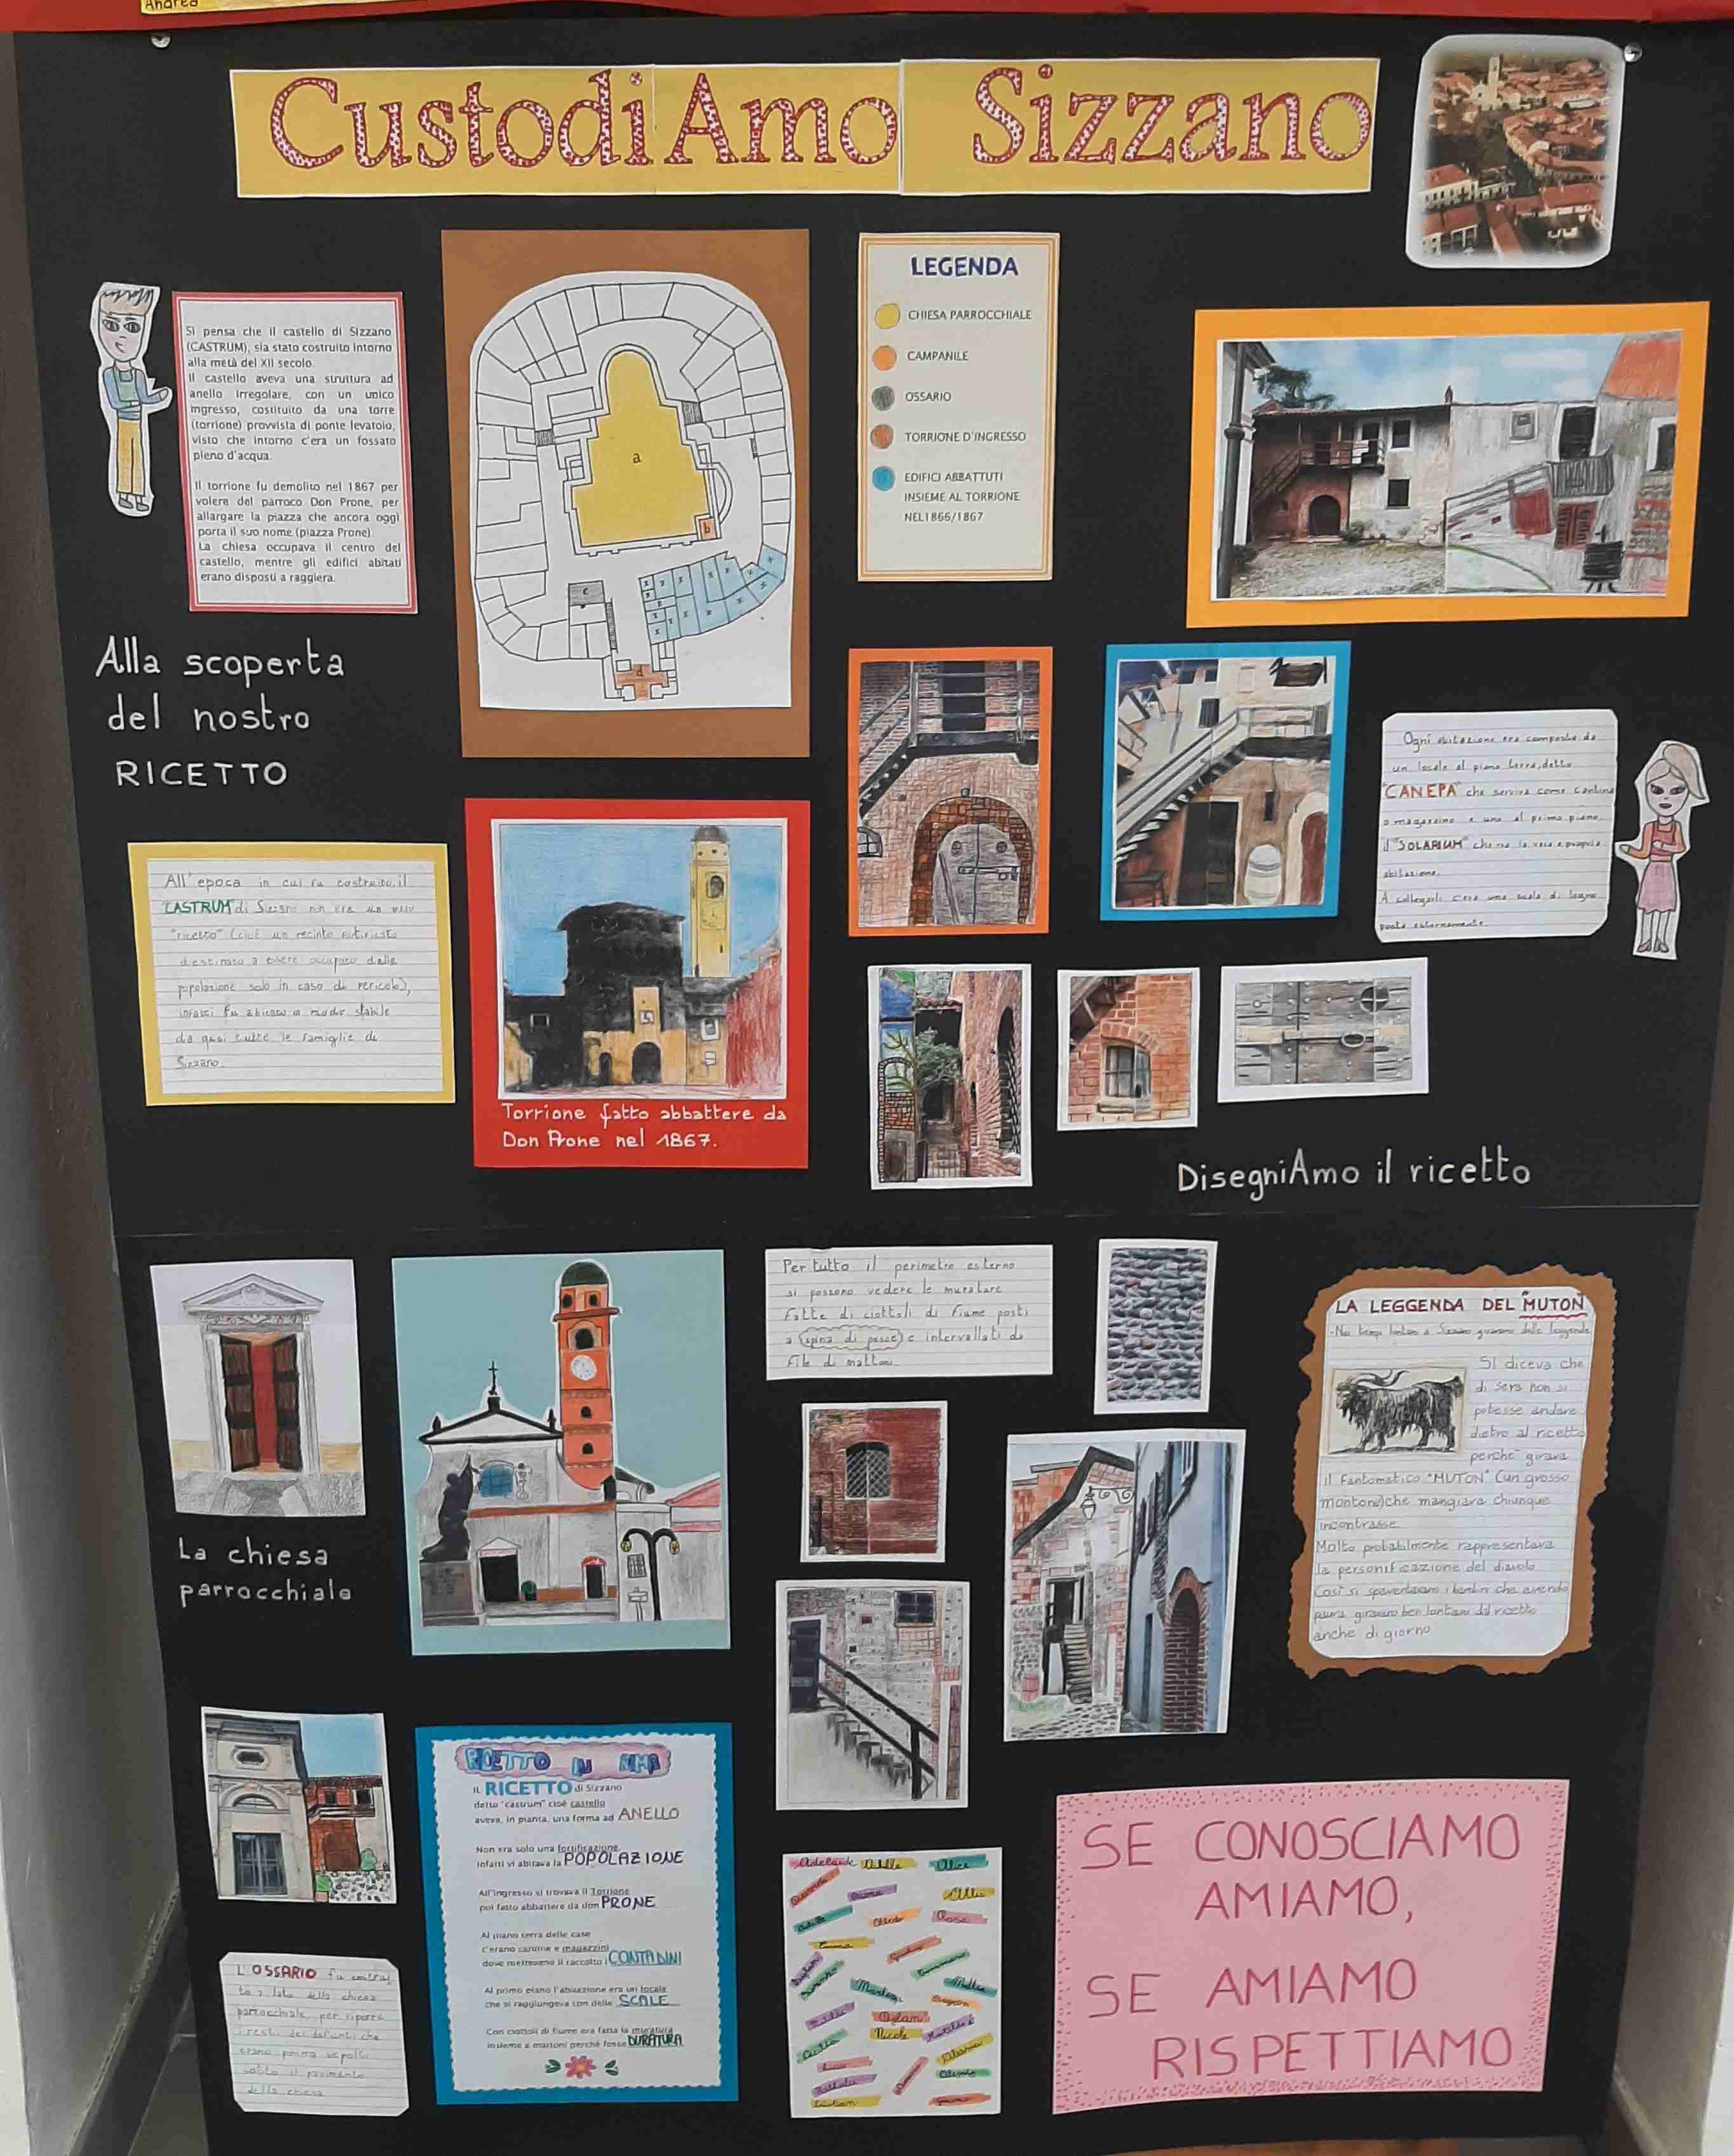 Andrea
CustodiAmo Sizzano
Si pensa che il castello di Sizzano
(CASTRUM), sia stato costruito intorno
alla metà del XII secolo.
Il castello aveva una struttura ad
anello irregolare, con un unico
ingresso, costituito da una torre
(torrione) provvista di ponte levatoio,
visto che intorno c'era un fossato
pieno d'acqua.
Il torrione fu demolito nel 1867 per
volere del parroco Don Prone, per
allargare la piazza che ancora oggi
porta il suo nome (piazza Prone)
La chiesa occupava il centro del
castello, mentre gli edifici abitati
erano disposti a raggiera.
a
b
c
d
LEGENDA
CHIESA PARROCCHIALE
CAMPANILE
OSSARIO
TORRIONE D'INGRESSO
EDIFICI ABBATTUTI
INSIEME AL TORRIONE
NEL1866/1867
Alla scoperta
del nostro
RICETTO
Ogni abitazione era composta da
un locale al piano terra, detto
"CANEPA" che serviva come cantina
o magazzino e uno al primo piano,
il "SOLARIUM" che era la vera e propria
abitazione.
A collegarli c'era una scala di legno
posta esternamente.
All'epoca in cui fu costruito, il
"CASTRUM" di Sizzano non era un vero
"ricetto" (cioè un recinto fortificato
destinato a essere occupato dalla
popolazione solo in caso di pericolo),
infatti fu abitato in modo stabile
da quasi tutte le famiglie di
Sizzano.
Torrione fatto abbattere da
Don Prone nel 1867.
DisegniAmo il ricetto
La chiesa
parrocchiale
Per tutto il perimetro esterno
si possono vedere le murature
fatte di ciottoli di fiume posti
a (spina di pesce) e intervallati da
file di mattoni.
LA LEGGENDA DEL "MUTON"
Nei tempi lontani a Sizzano giravano delle leggende
Si diceva che
di sera non si
potesse andare
dietro al ricetto
perchè girava
il fantomatico "MUTON" (un grosso
montone) che mangiava chiunque
incontrasse.
Molto probabilmente rappresentava
la personificazione del diavolo.
Così si spaventavano i bambini che avendo
paura giravano ben lontani dal ricetto
anche di giorno.
RICETTO IN RIMA
IL RICETTO di Sizzano
detto "castrum" cioè castello
aveva, in pianta, una forma ad ANELLO
Non era solo una fortificazione
infatti vi abitava la POPOLAZIONE
All'ingresso si trovava il Torrione
poi fatto abbattere da don PRONE
Al piano terra delle case
c'erano cantine e magazzini
dove mettevano il raccolto i CONTADINI
Al primo piano l'abitazione era un locale
che si raggiungeva con delle SCALE
Con ciottoli di fiume era fatta la muratura
insieme a mattoni perché fosse DURATURA
L'OSSARIO fu costrui
to a lato della chiesa
parrocchiale, per riporre
i resti dei defunti che
erano prima sepolti
sotto il pavimento
della chiesa
Adelaide Achille Alice
Emma
Martina
Nicole Matilde
Cristian
SE CONOSCIAMO
AMIAMO,
SE AMIAMO
RISPETTIAMO